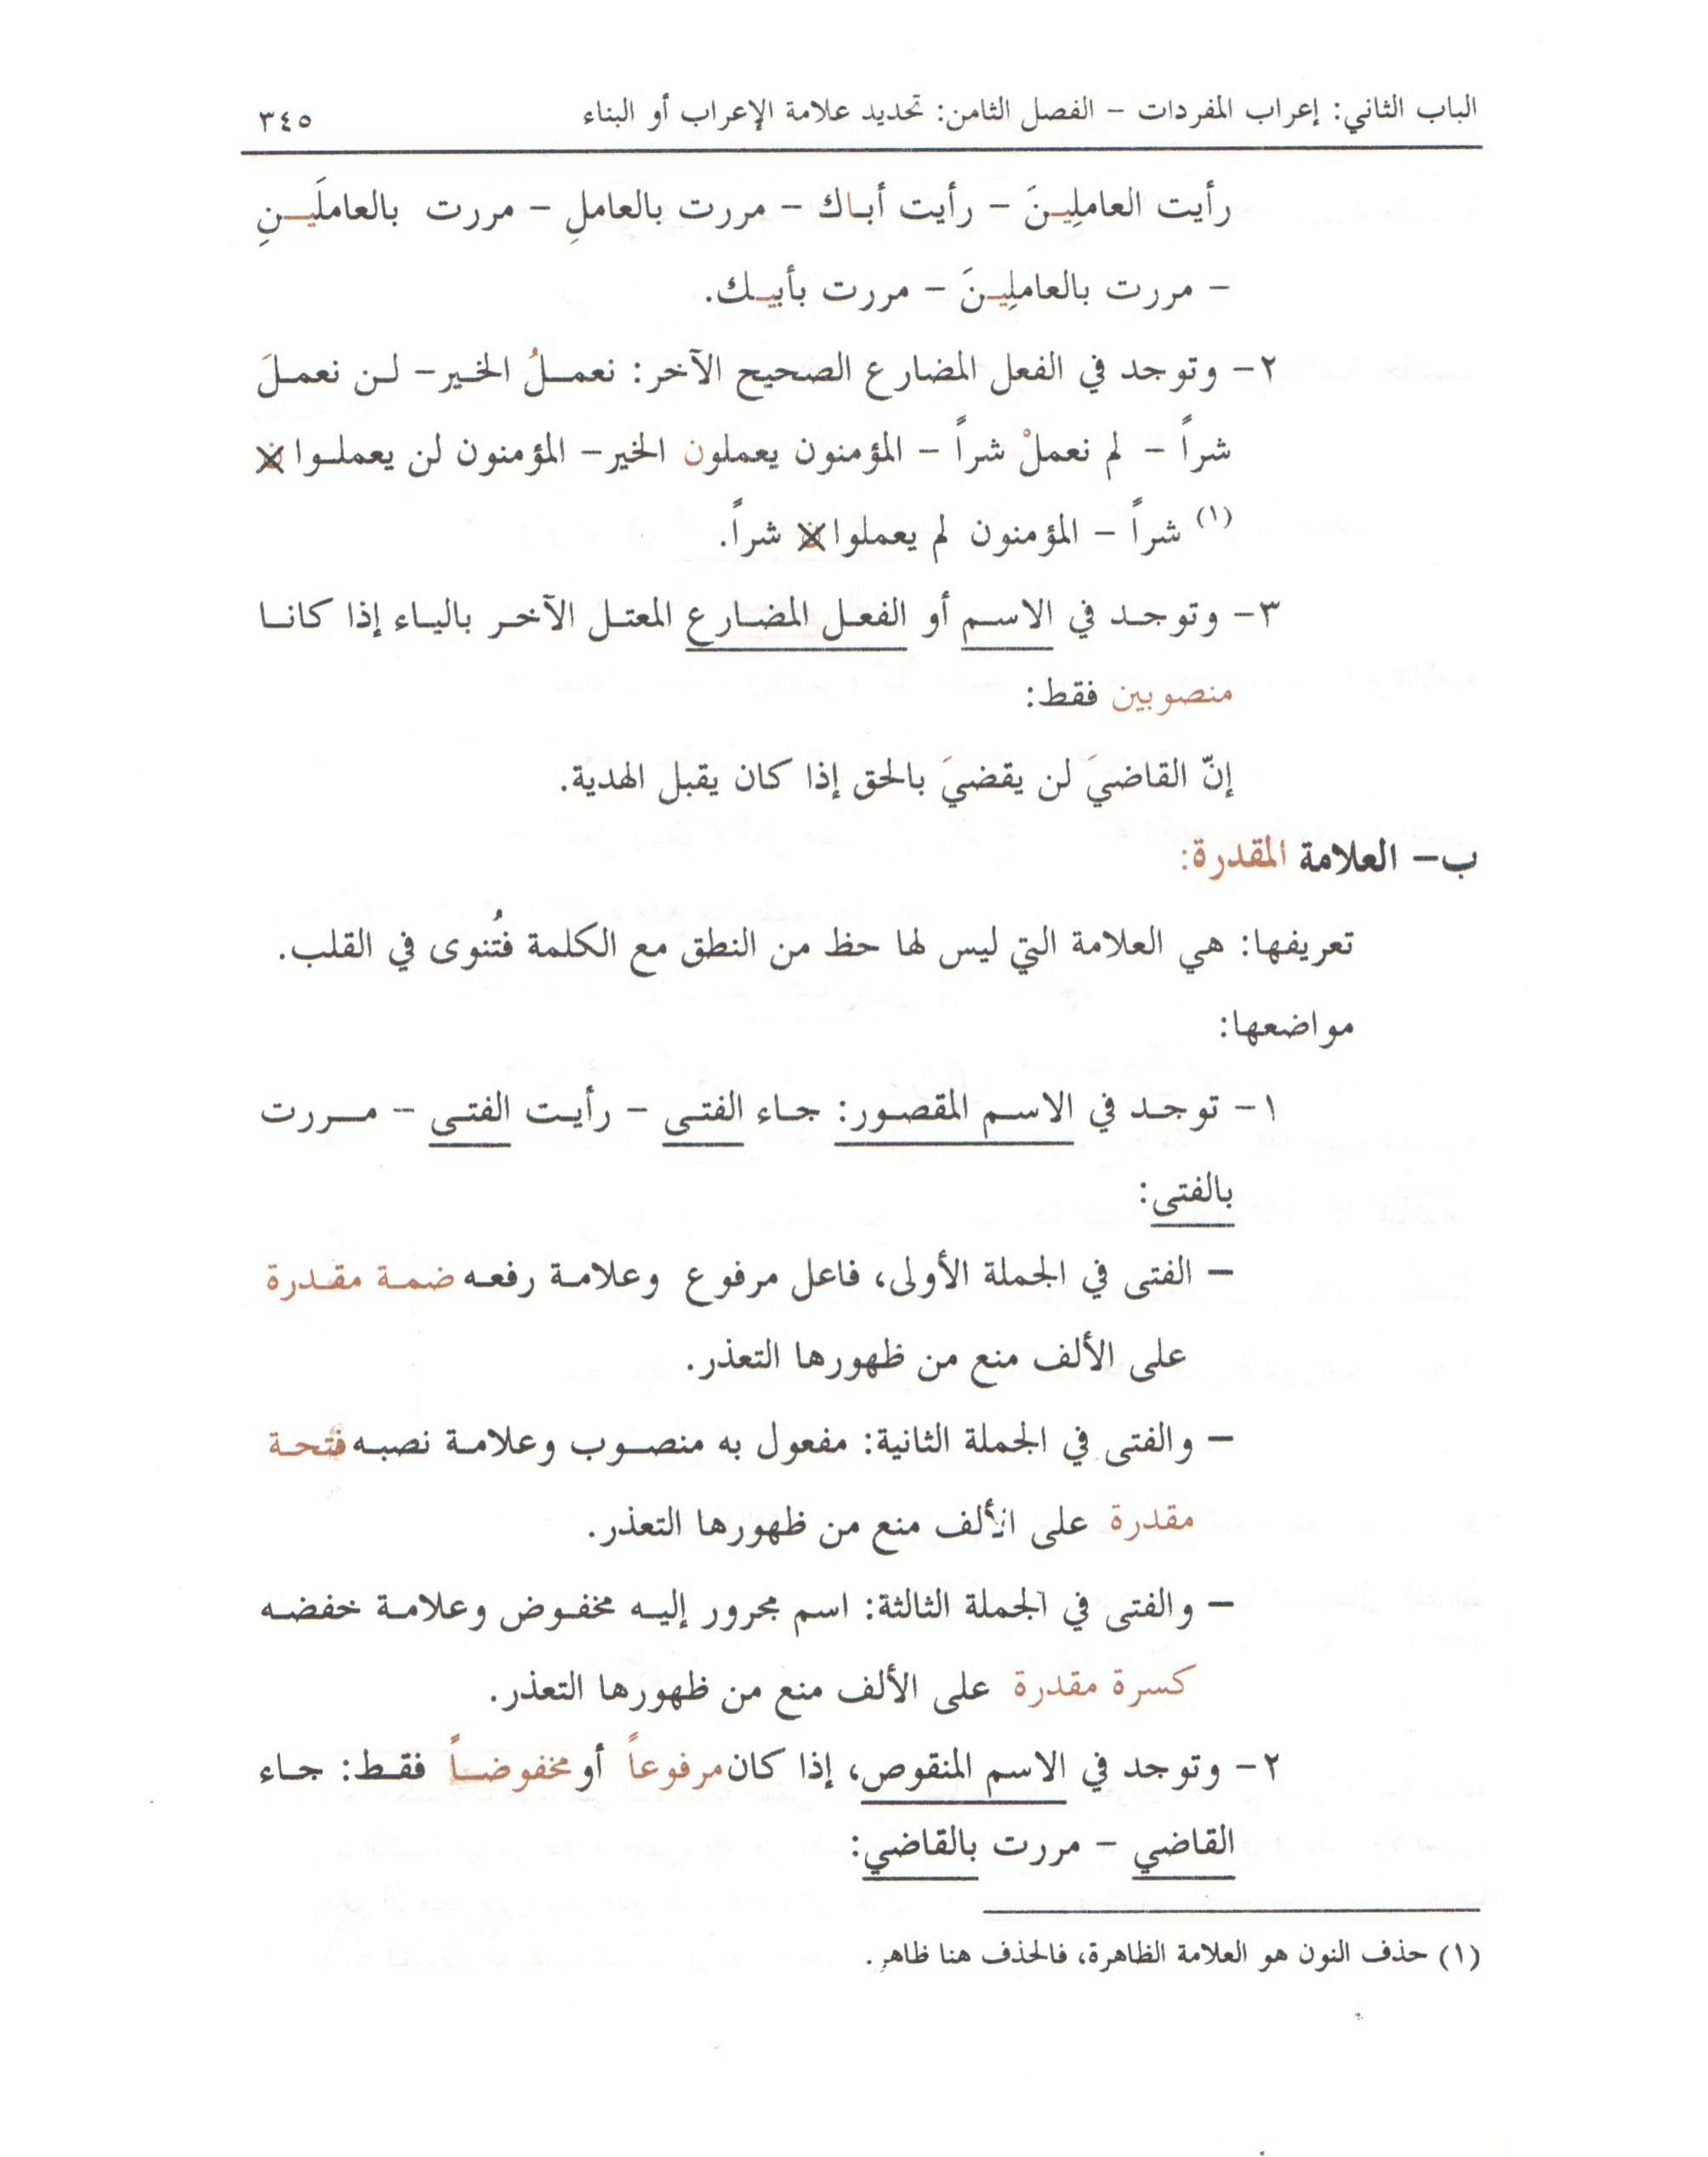 الباب الثاني: إعراب المفردات – الفصل الثامن: تحديد علامة الإعراب أو البناء ٣٤٥
رأيت العاملِينَ – رأيت أباك – مررت بالعاملِ – مررت بالعاملَينِ
– مررت بالعاملِينَ – مررت بأبيك.
٢– وتوجد في الفعل المضارع الصحيح الآخر: نعملُ الخير– لن نعملَ
شراً – لم نعملْ شراً – المؤمنون يعملون الخير– المؤمنون لن يعملوا
(١) شراً – المؤمنون لم يعملوا شراً.
٣– وتوجد في الاسم أو الفعل المضارع المعتل الآخر بالياء إذا كانا
منصوبين فقط:
إنّ القاضيَ لن يقضيَ بالحق إذا كان يقبل الهدية.
ب– العلامة المقدرة:
تعريفها: هي العلامة التي ليس لها حظ من النطق مع الكلمة فتُنوى في القلب.
مواضعها:
١– توجد في الاسم المقصور: جاء الفتى – رأيت الفتى – مررت
بالفتى:
– الفتى في الجملة الأولى، فاعل مرفوع وعلامة رفعه ضمة مقدرة
على الألف منع من ظهورها التعذر.
– والفتى في الجملة الثانية: مفعول به منصوب وعلامة نصبه فتحة
مقدرة على الألف منع من ظهورها التعذر.
– والفتى في الجملة الثالثة: اسم مجرور إليه مخفوض وعلامة خفضه
كسرة مقدرة على الألف منع من ظهورها التعذر.
٢– وتوجد في الاسم المنقوص، إذا كان مرفوعاً أو مخفوضاً فقط: جاء
القاضي – مررت بالقاضي:
(١) حذف النون هو العلامة الظاهرة، فالحذف هنا ظاهر.